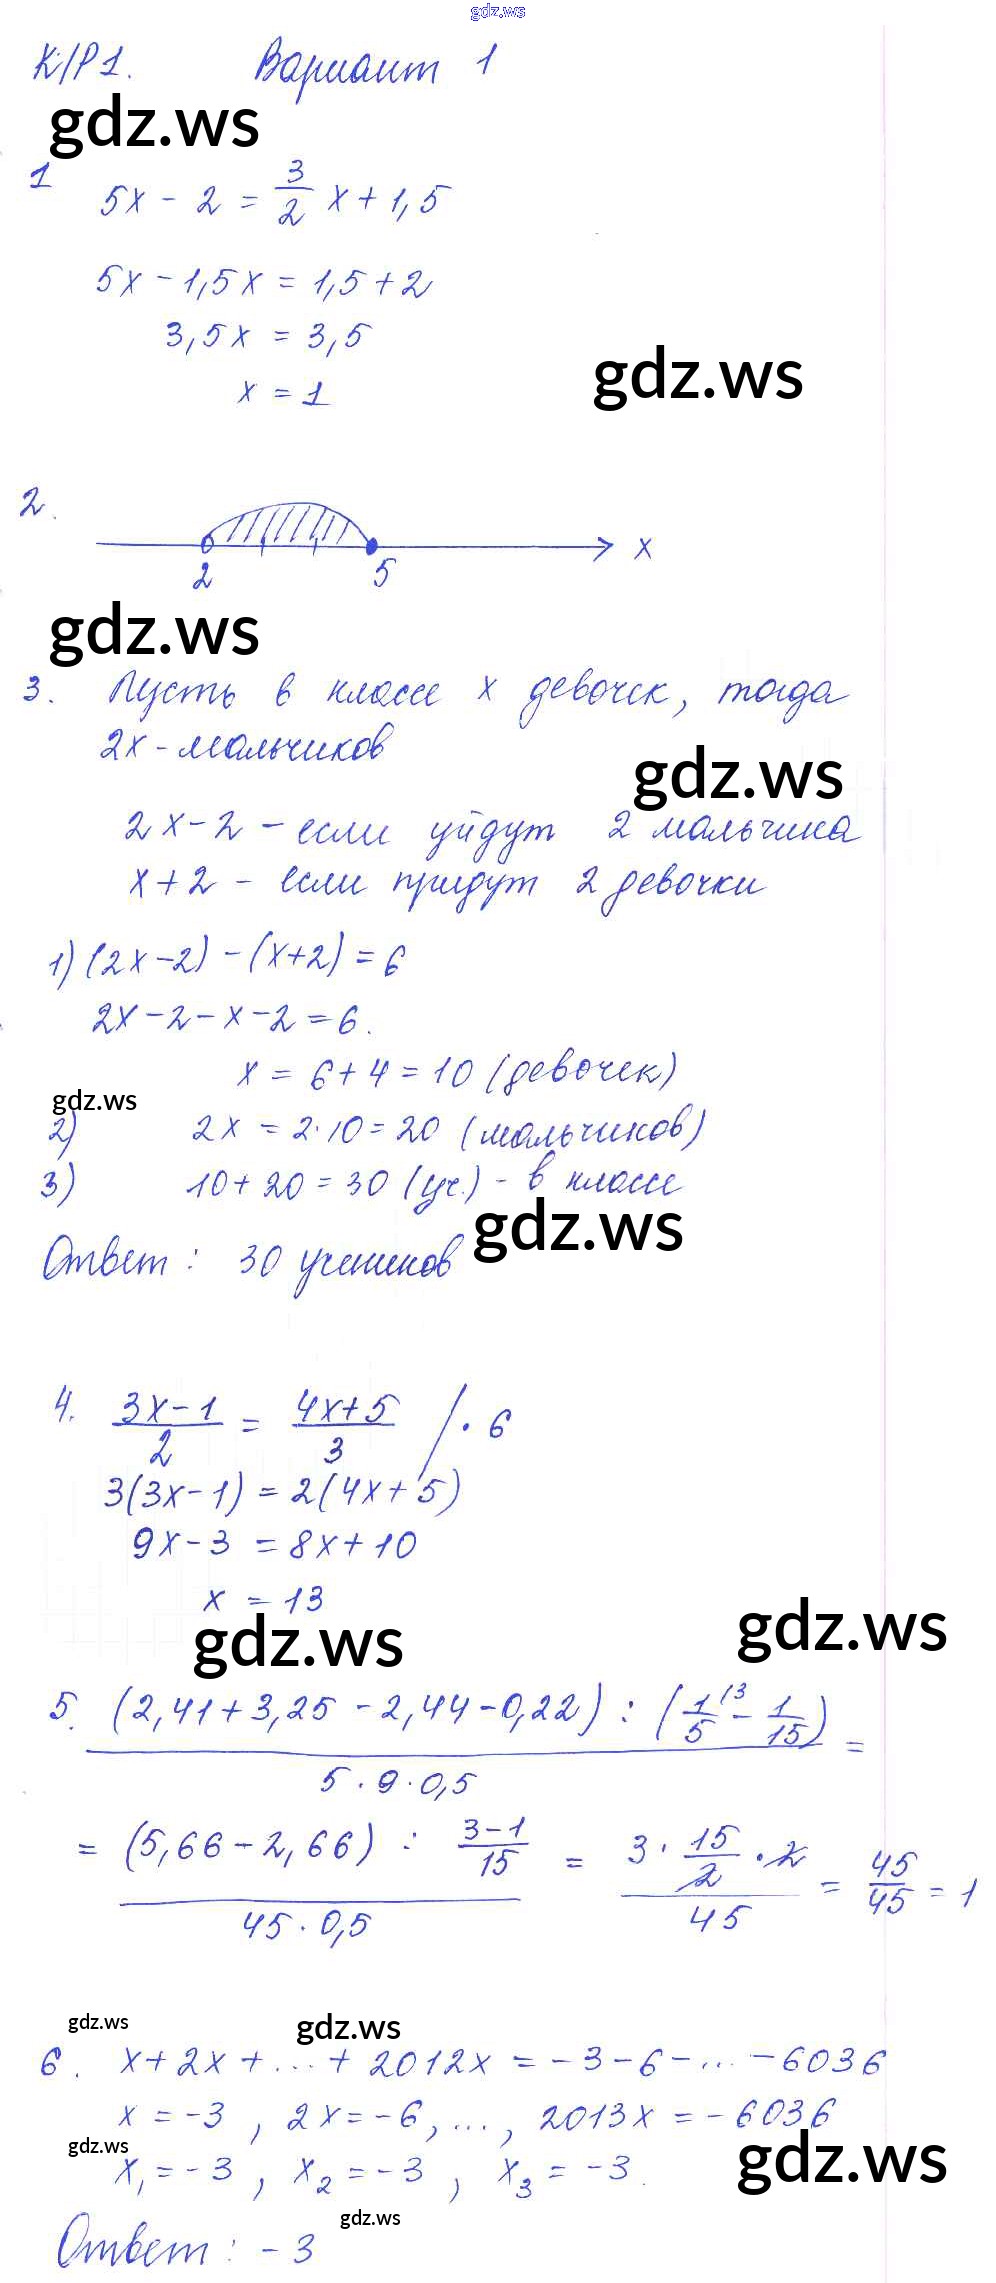 gdz.ws
К/Р 1. Вариант 1
gdz.ws
1 5x - 2 = 3/2 x + 1,5
5x - 1,5x = 1,5 + 2
3,5x = 3,5
gdz.ws
x = 1
2.
x
2 5
gdz.ws
3. Пусть в классе x девочек, тогда
2x - мальчиков
gdz.ws
2x - 2 - если уйдут 2 мальчика
x + 2 - если придут 2 девочки
1) (2x - 2) - (x + 2) = 6
2x - 2 - x - 2 = 6.
x = 6 + 4 = 10 (девочек)
gdz.ws
2) 2x = 2 · 10 = 20 (мальчиков)
3) 10 + 20 = 30 (уч.) - в классе
gdz.ws
Ответ: 30 учеников
4. (3x - 1)/2 = (4x + 5)/3 / · 6
3(3x - 1) = 2(4x + 5)
9x - 3 = 8x + 10
x = 13
gdz.ws gdz.ws
5. (2,41 + 3,25 - 2,44 - 0,22) : (1/5 \3 - 1/15) =
5 · 9 · 0,5
= (5,66 - 2,66) : (3 - 1)/15 = 3 · 15/2 · 2 = 45/45 = 1
45 · 0,5 45
gdz.ws gdz.ws
6. x + 2x + ... + 2012x = -3 - 6 - ... - 6036
x = -3, 2x = -6, ..., 2013x = -6036
gdz.ws gdz.ws
x₁ = -3, x₂ = -3, x₃ = -3.
gdz.ws
Ответ: -3